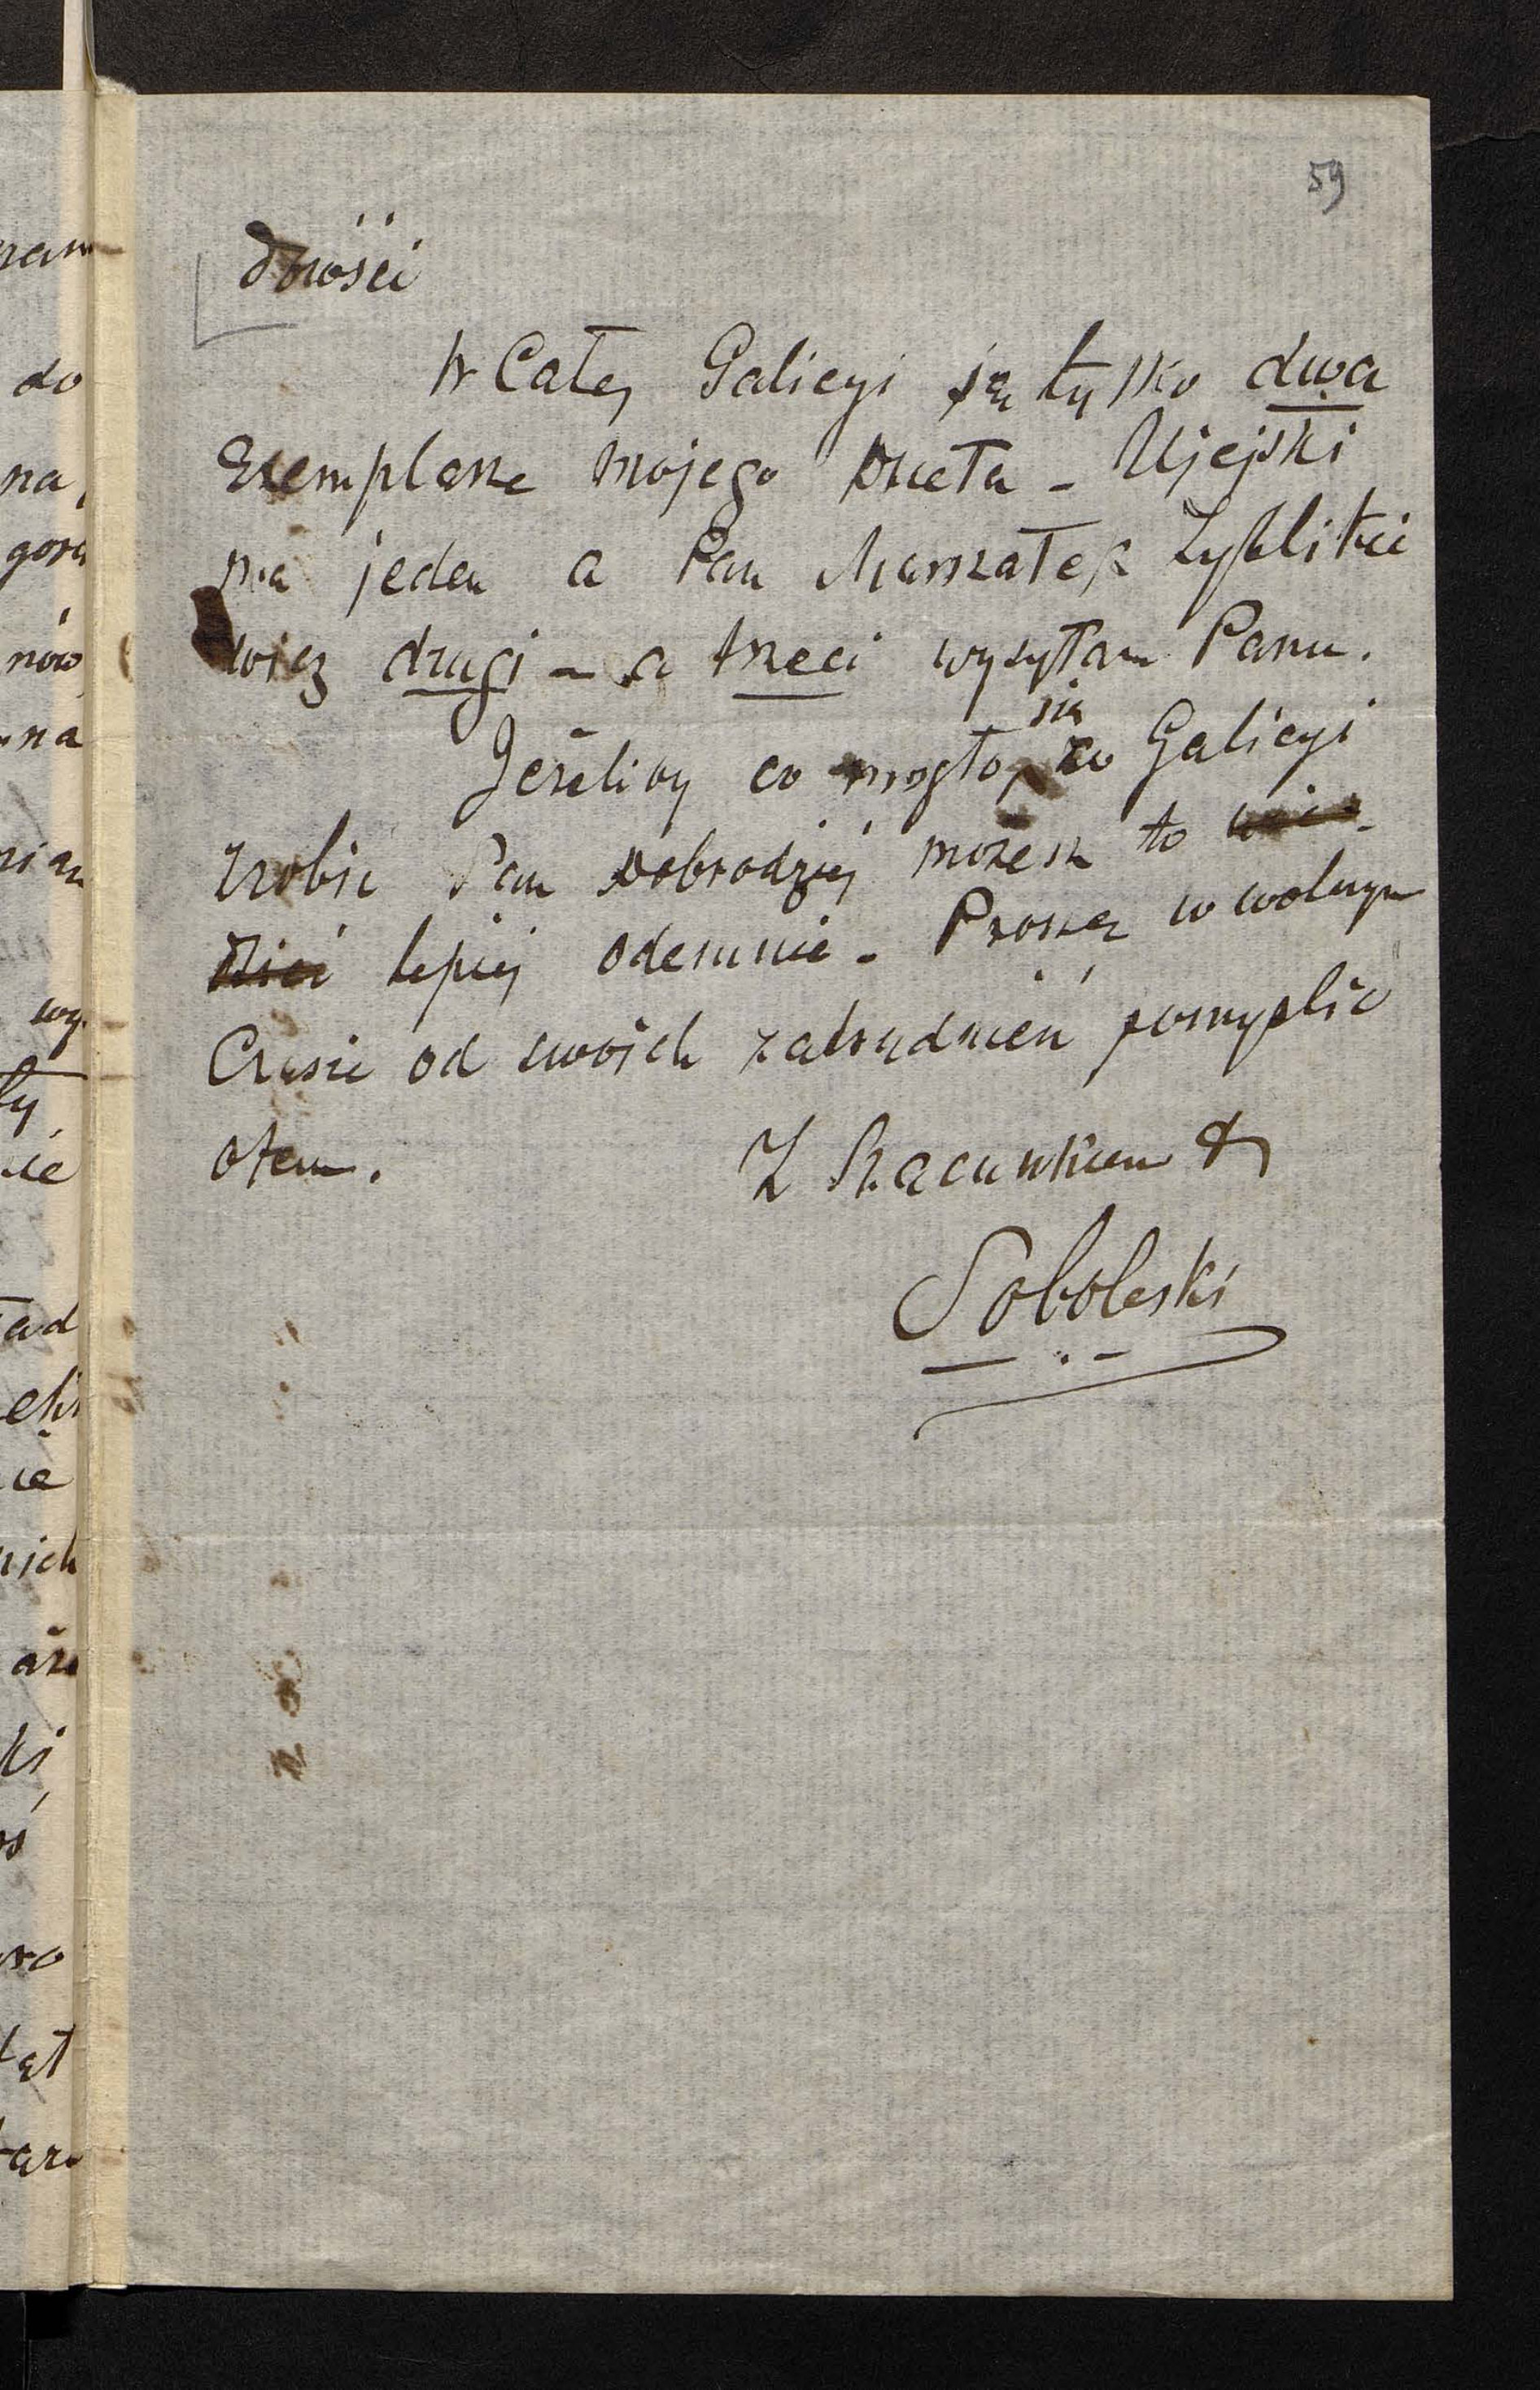 59
dności
W Całej Galicyi są tylko dwa
Exemplarze mojego Dzieła - Ujejski
ma jeden a Pan Marszałek Zyblikie
wicz drugi - a trzeci wysyłam Panu.
Jeżeliby co mogło się w Galicyi
zrobić Pan Dobrodziej możesz to wie-
dzieć lepiej odemnie - Proszę w wolnym
Czasie od swoich zatrudnień pomyślić
otem.
Z Szacunkiem
Soboleski